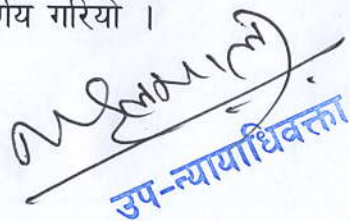 र्णय गरियो ।
उप-न्यायाधिवक्ता